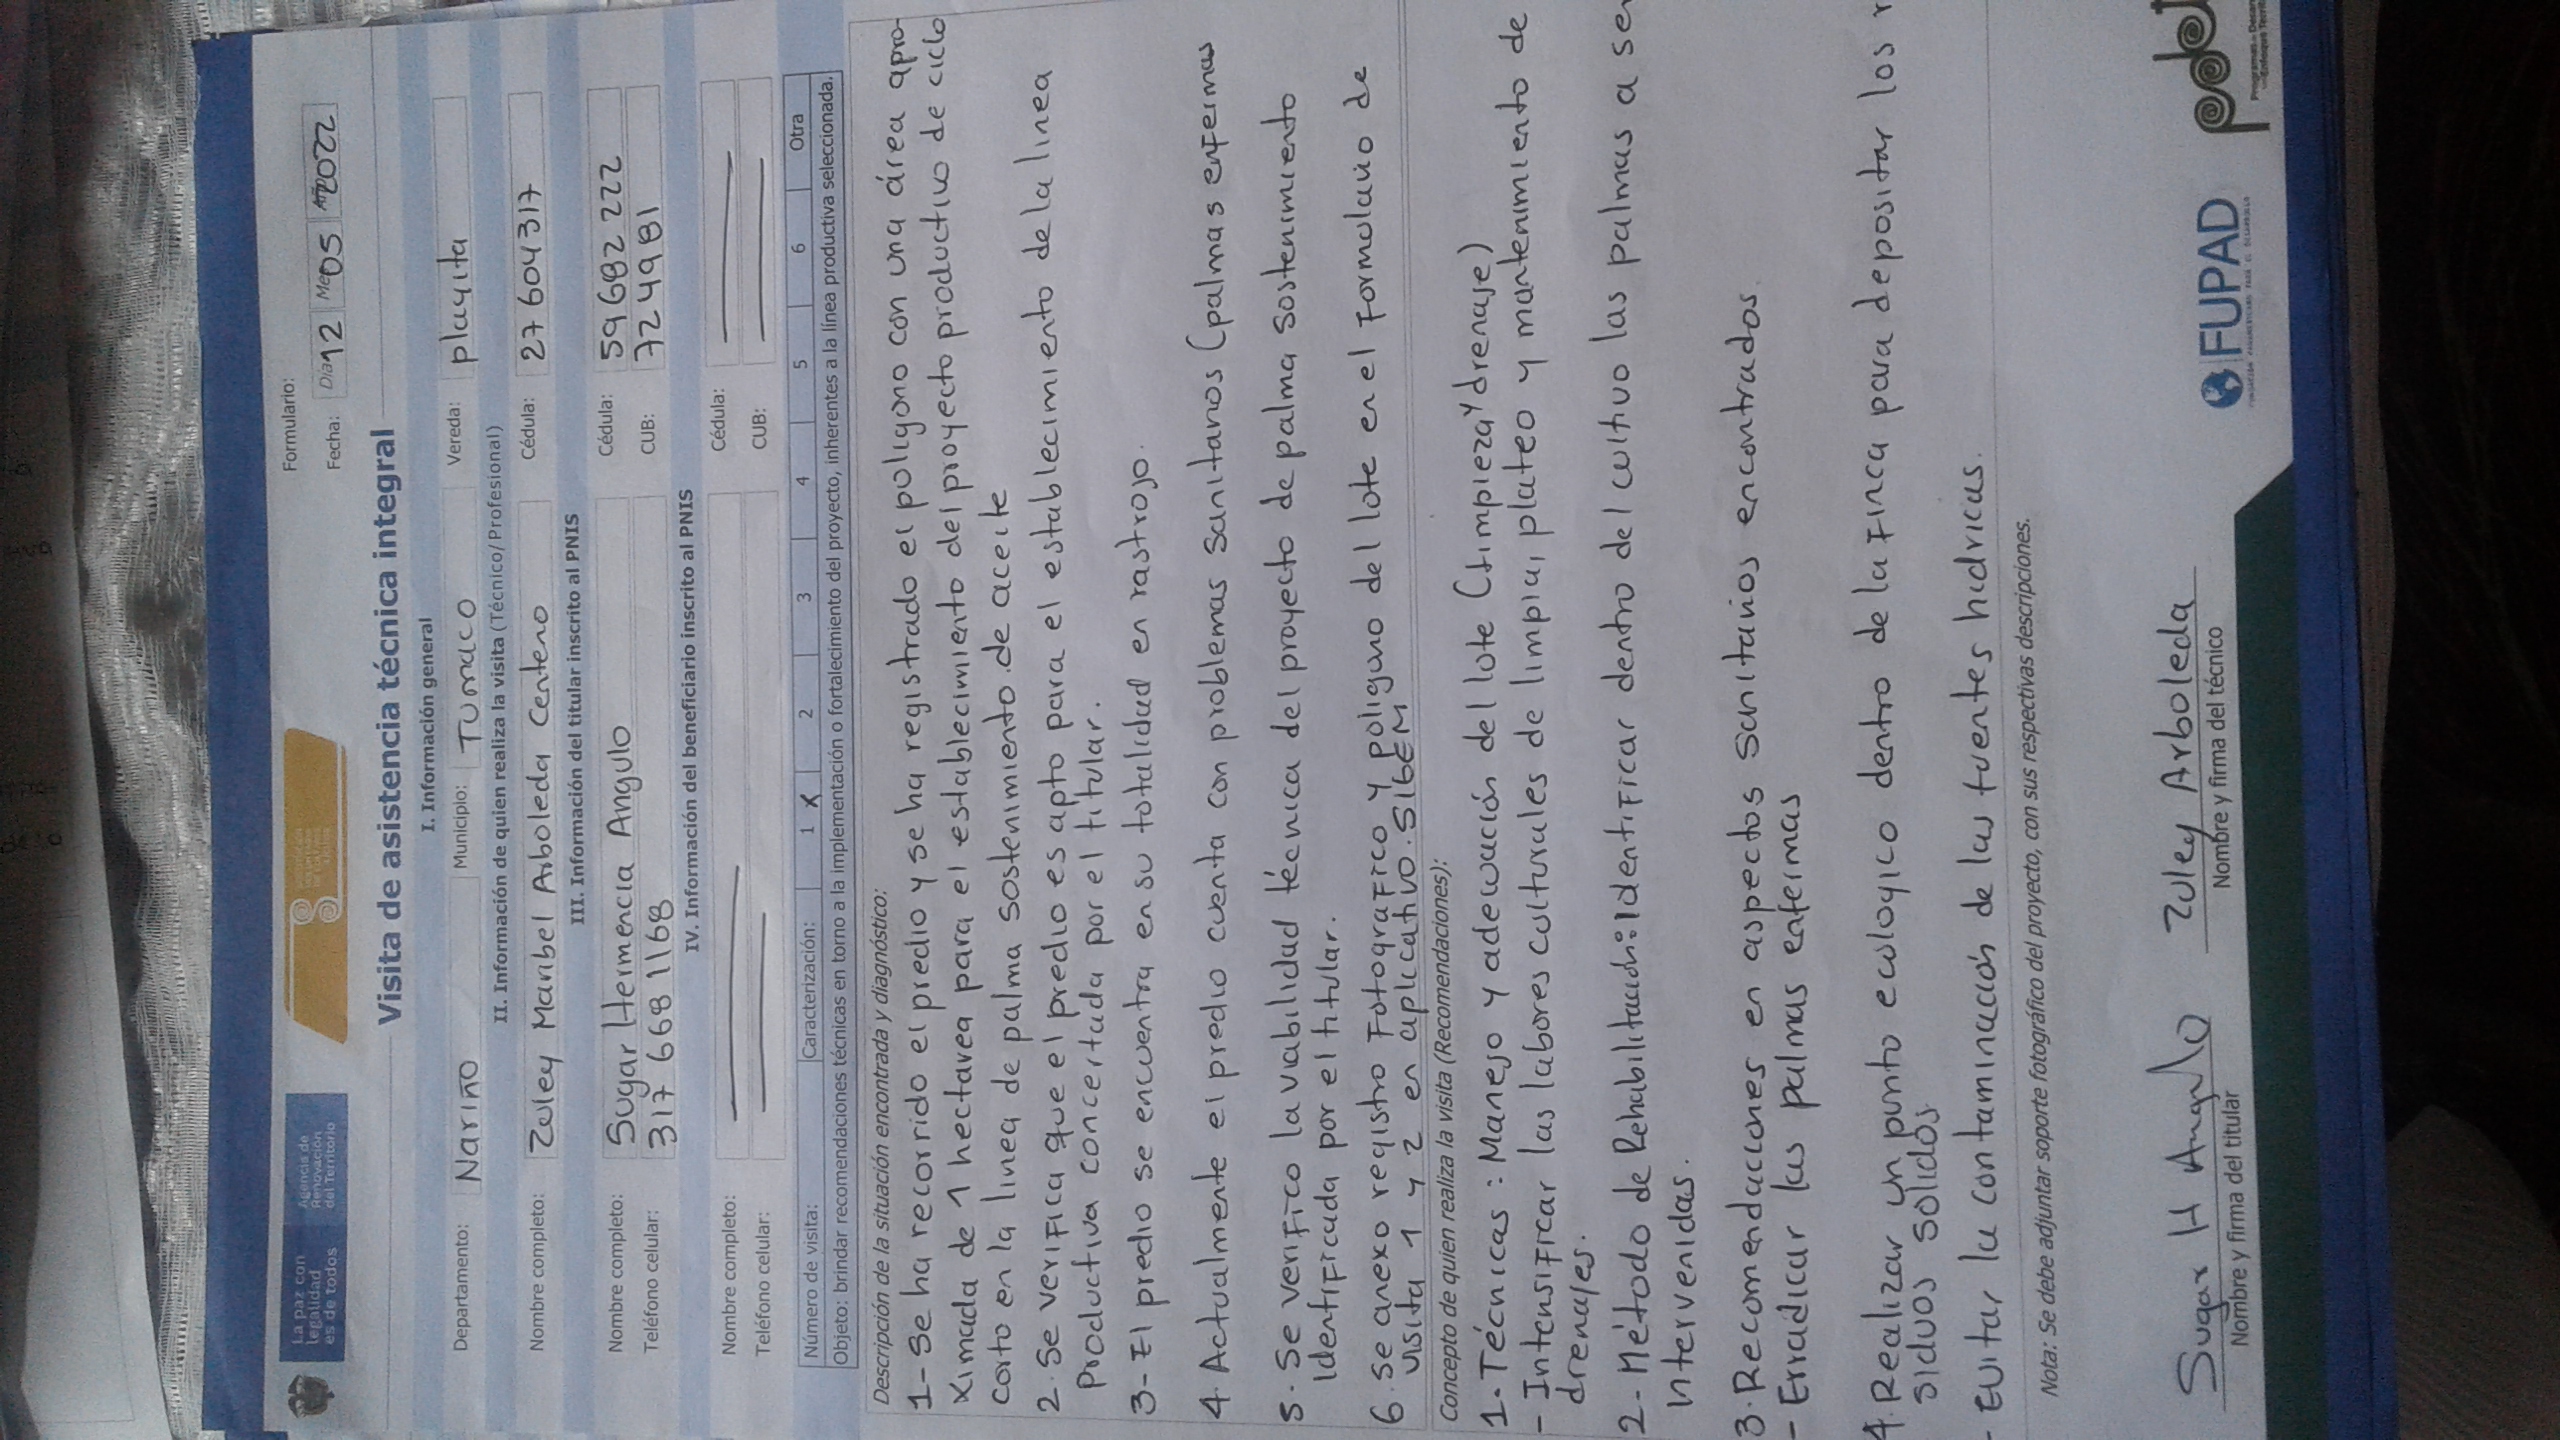 La paz con
legalidad
es de todos
Agencia de
Renovación
del Territorio
Formulario:
Fecha: Día 12 Mes 05 Año 2022
Visita de asistencia técnica integral
I. Información general
Departamento: Nariño Municipio: Tumaco Vereda: playita
II. Información de quien realiza la visita (Técnico/Profesional)
Nombre completo: Zuley Maribel Arboleda Centeno Cédula: 27604317
III. Información del titular inscrito al PNIS
Nombre completo: Sugar Hermencia Angulo Cédula: 59682222
Teléfono celular: 317 668 1168 CUB: 7249981
IV. Información del beneficiario inscrito al PNIS
Nombre completo: Cédula:
Teléfono celular: CUB:
Número de visita: Caracterización: 1 X 2 3 4 5 6 Otra
Objeto: brindar recomendaciones técnicas en torno a la implementación o fortalecimiento del proyecto, inherentes a la línea productiva seleccionada.
Descripción de la situación encontrada y diagnóstico:
1- Se ha recorrido el predio y se ha registrado el poligono con una área apro-
ximada de 1 hectarea para el establecimiento del proyecto productivo de ciclo
corto en la linea de palma sostenimiento. de aceite
2. Se verifica que el predio es apto para el establecimiento de la linea
productiva concertada por el titular.
3- El predio se encuentra en su totalidad en rastrojo.
4 Actualmente el predio cuenta con problemas sanitarios (palmas enfermas
5. Se verifico la viabilidad técnica del proyecto de palma sostenimiento
identificada por el titular.
6. Se anexo registro fotografico y poligono del lote en el formulario de
visita 1 y 2 en aplicativo. SIGEM
Concepto de quien realiza la visita (Recomendaciones):
1- Técnicas: Manejo y adecuación del lote (limpieza y drenaje)
- Intensificar las labores culturales de limpia, plateo y mantenimiento de
drenajes.
2- Método de Rehabilitación: Identificar dentro del cultivo las palmas a ser
intervenidas.
3. Recomendaciones en aspectos sanitarios encontrados.
- Erradicar las palmas enfermas
4. Realizar un punto ecologico dentro de la finca para depositar los r
siduos solidos.
- Evitar la contaminación de las fuentes hidricas.
Nota: Se debe adjuntar soporte fotográfico del proyecto, con sus respectivas descripciones.
Sugar H Angulo Zuley Arboleda
Nombre y firma del titular Nombre y firma del técnico
FUPAD
pdet